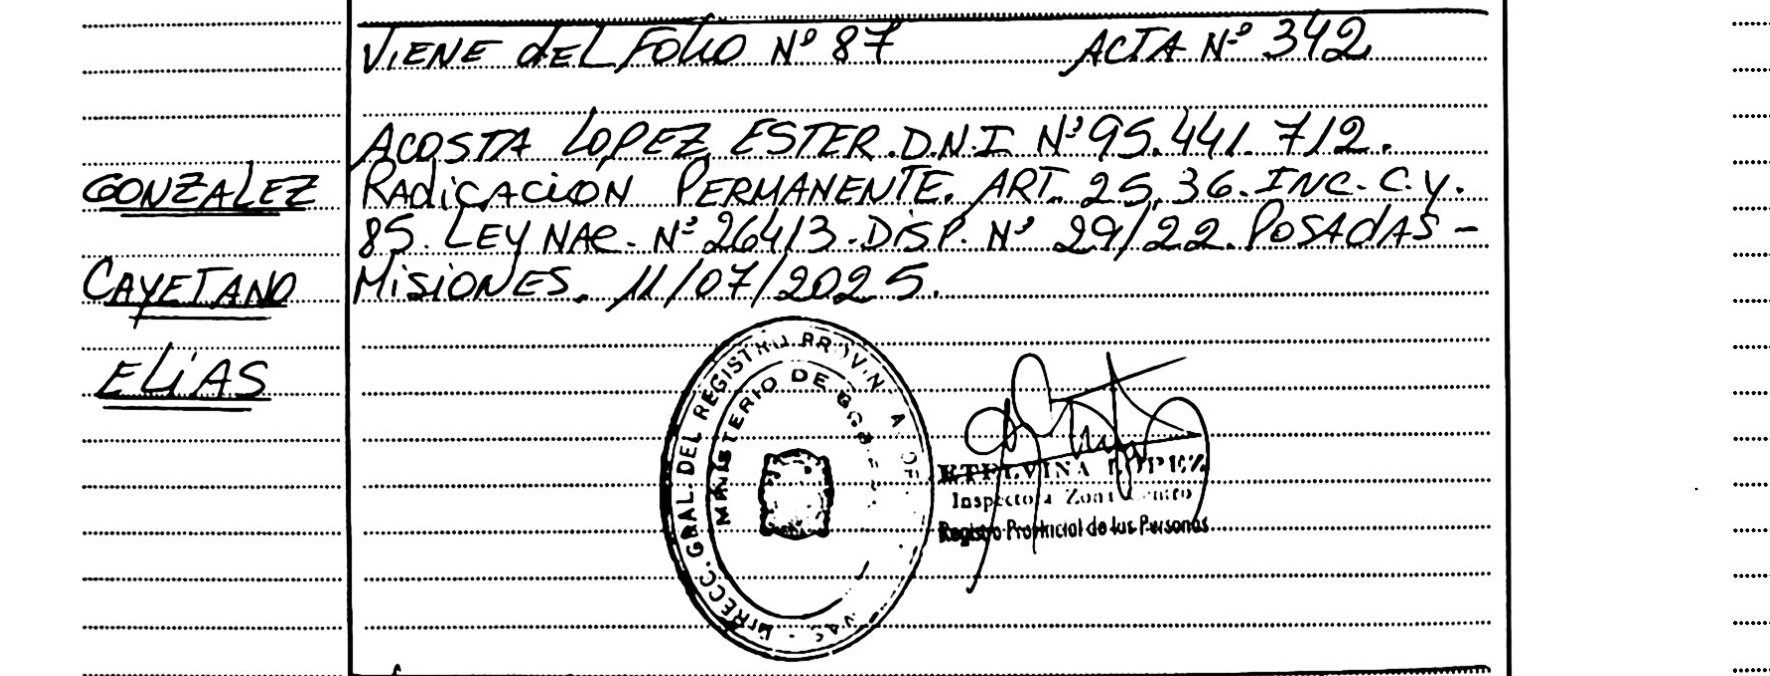 VIENE dEL FOLIO Nº 87 ACTA Nº 342
ACOSTA LOPEZ ESTER.D.N.I Nº 95.441.712.
GONZALEZ RADiCACiON PERMANENTE. ART. 25,36.INC.C.Y.
85. LEY NAC. Nº 26413.DISP. Nº 29/22. POSADAS -
CAYETANO MiSiONES. 11/07/2025.
ELiAS
DIRECC.GRAL.DEL REGISTRO
MINISTERIO DE
ETELVINA LOPEZ
Inspectora Zona Centro
Registro Provincial de las Personas